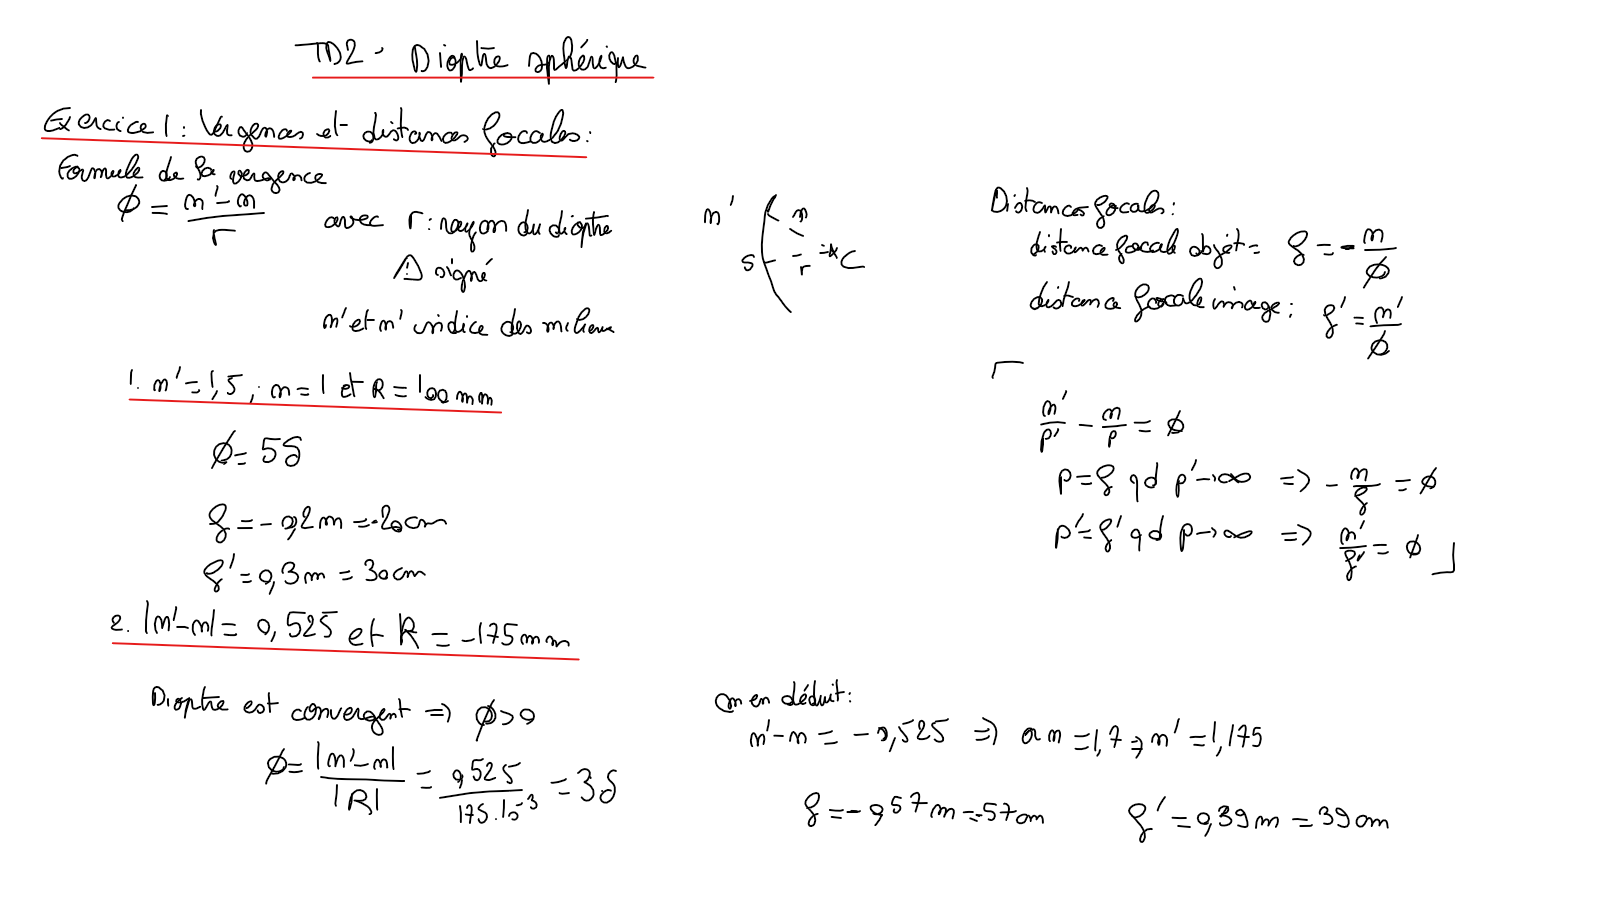 TD2 - Dioptre sphérique
Exercice 1 : Vergences et distances focales :
Formule de la vergence
ϕ = (n' - n) / r
avec r : rayon du dioptre
⚠ signé
n' et n' indice des milieux
n'
n
S
r
C
Distances focales :
distance focale objet = f = - n/ϕ
distance focale image : f' = n'/ϕ
n'/p' - n/p = ϕ
p = f qd p' → ∞ => - n/f = ϕ
p' = f' qd p → ∞ => n'/f' = ϕ
1. n' = 1,5 ; n = 1 et R = 100 mm
ϕ = 5δ
f = - 0,2 m = -20 cm
f' = 0,3 m = 30 cm
2. |n' - n| = 0,525 et R = -175 mm
Dioptre est convergent => ϕ > 0
ϕ = |n' - n| / |R| = 0,525 / 175.10^-3 = 3δ
on en déduit :
n' - n = - 0,525 => or n = 1,7 => n' = 1,175
f = - 0,57 m = -57 cm
f' = 0,39 m = 39 cm